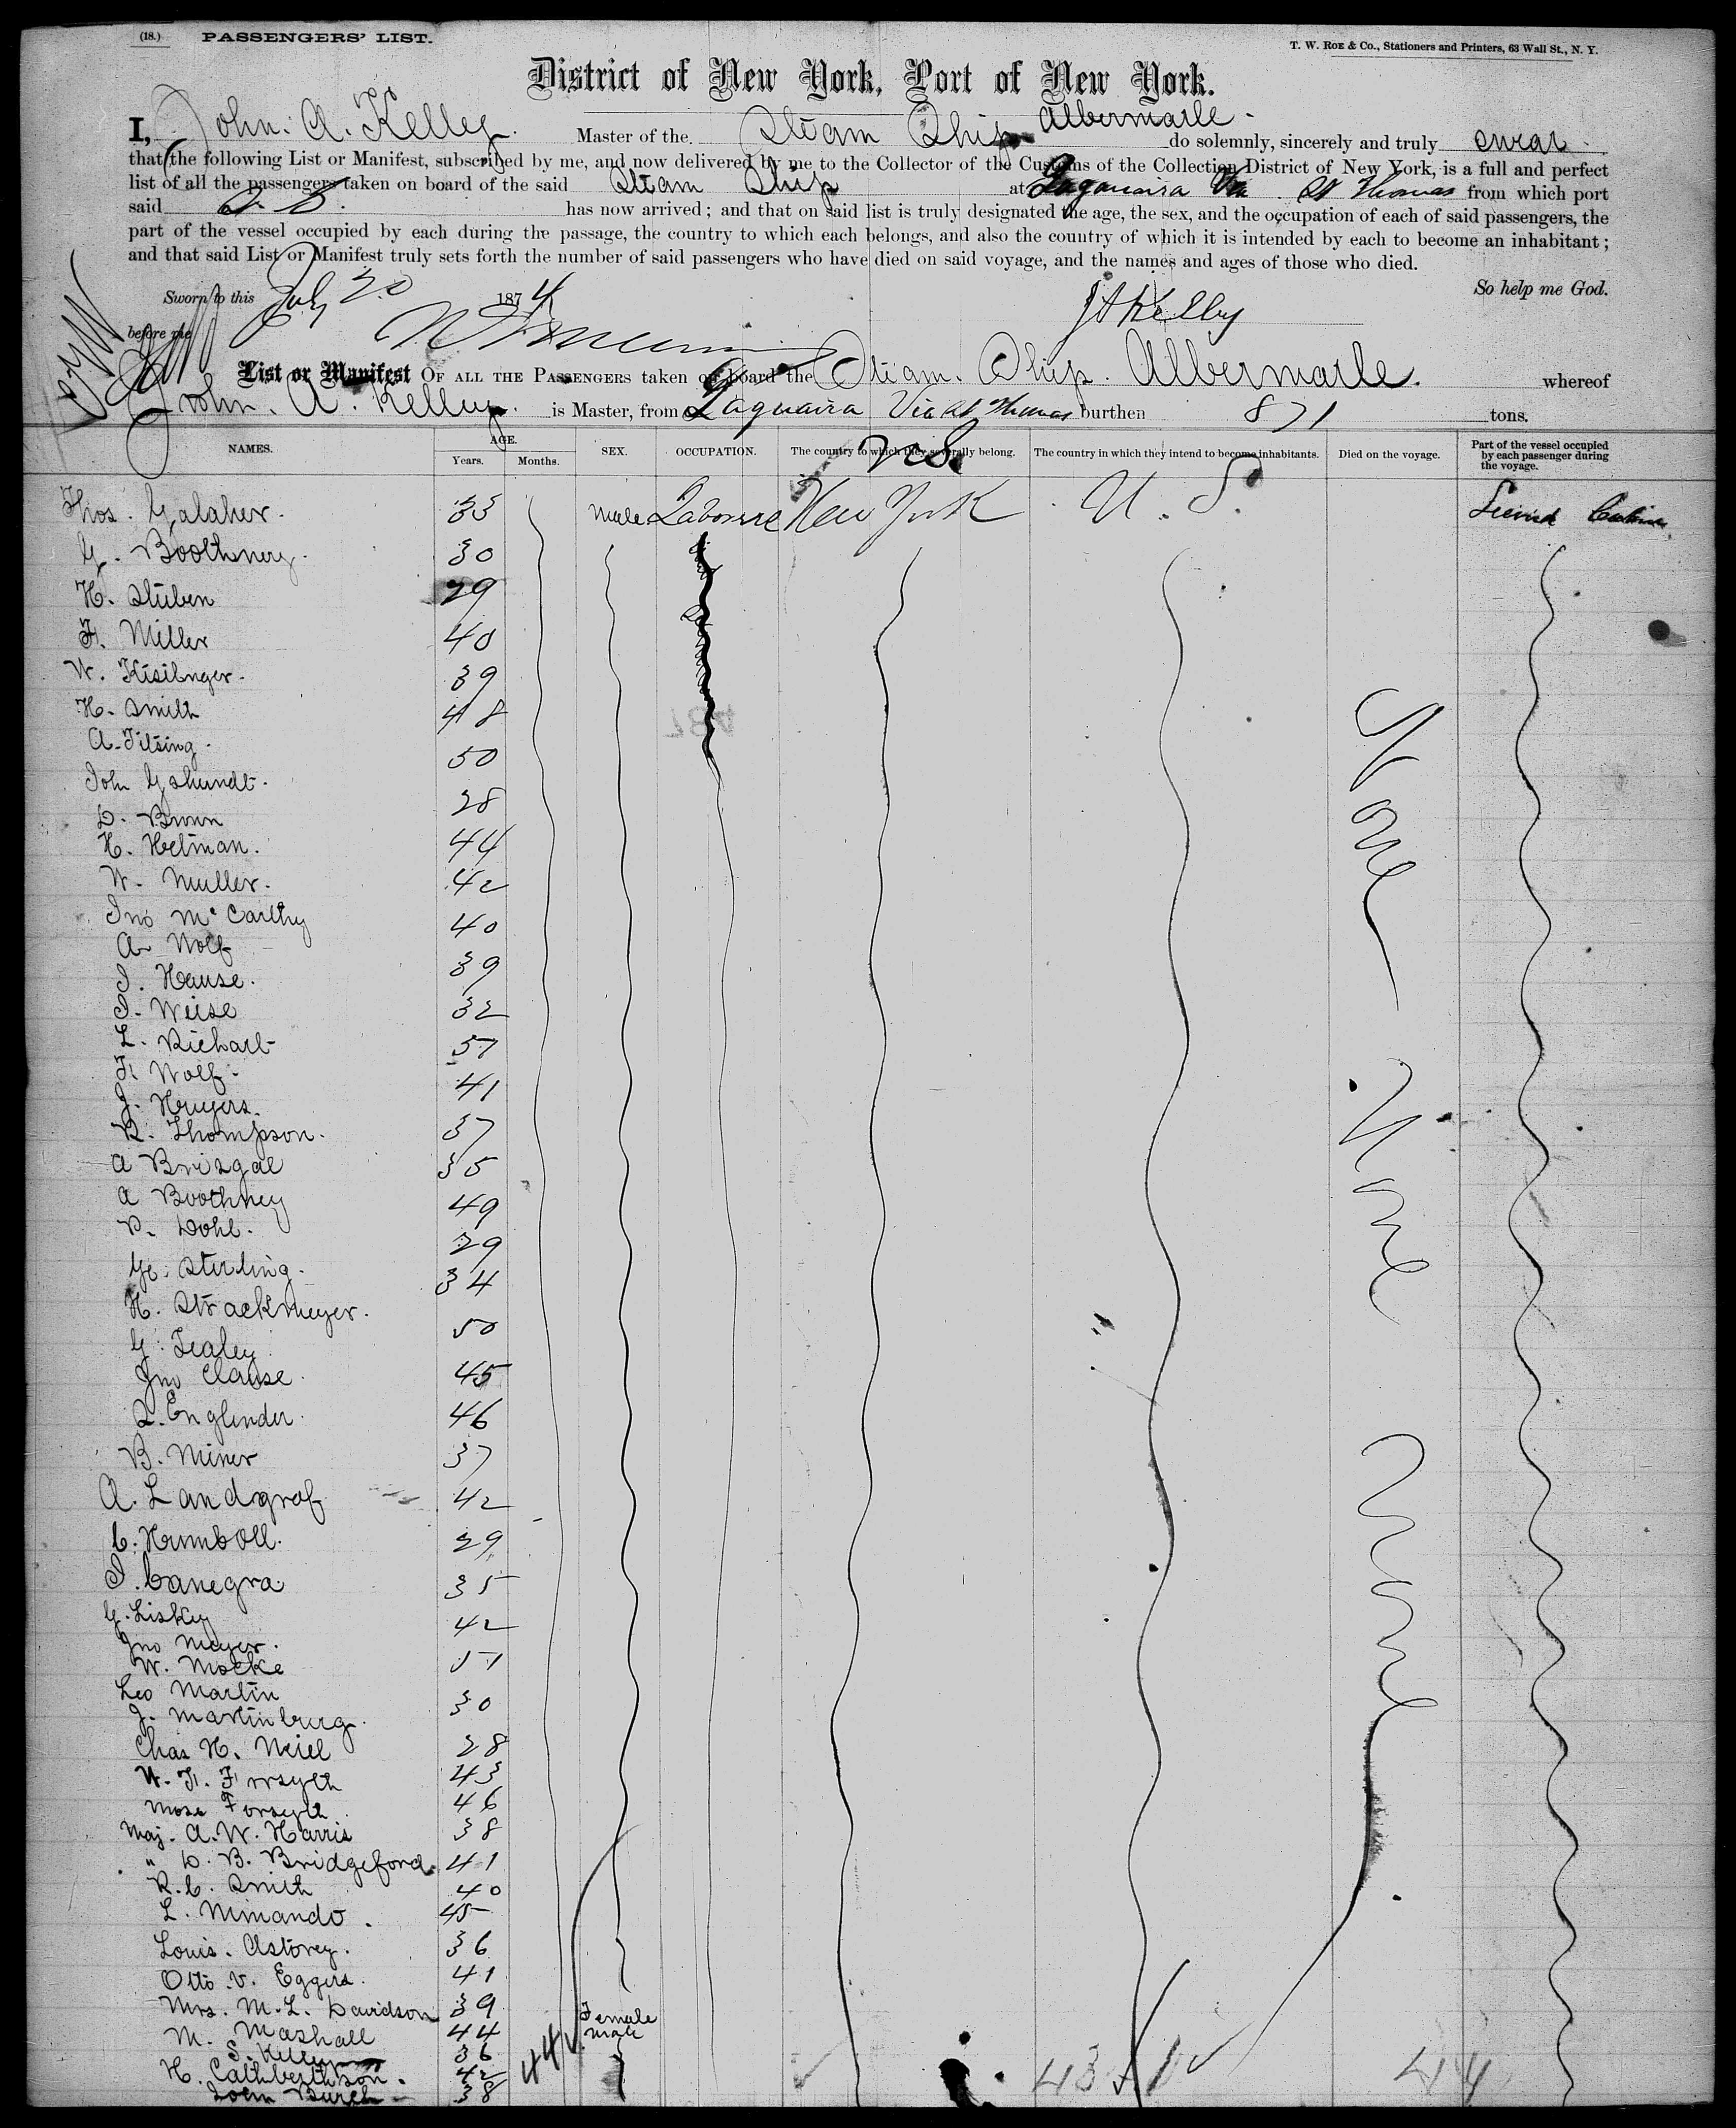 (18.) PASSENGERS' LIST.
T. W. ROE & Co., Stationers and Printers, 63 Wall St., N. Y.
District of New York, Port of New York.
I, John. A. Kelley. Master of the Steam Ship Albermarle - do solemnly, sincerely and truly swear
that the following List or Manifest, subscribed by me, and now delivered by me to the Collector of the Customs of the Collection District of New York, is a full and perfect
list of all the passengers taken on board of the said Steam Ship at Laguaira Via St Thomas from which port
said has now arrived; and that on said list is truly designated the age, the sex, and the occupation of each of said passengers, the
part of the vessel occupied by each during the passage, the country to which each belongs, and also the country of which it is intended by each to become an inhabitant;
and that said List or Manifest truly sets forth the number of said passengers who have died on said voyage, and the names and ages of those who died.
Sworn to this July 20 1874 So help me God.
before me J A Kelley
List or Manifest OF ALL THE PASSENGERS taken on board the Steam. Ship. Albermarle. whereof
John. A. Kelley. is Master, from Laguaira Via St Thomas burthen 871 tons.
NAMES. AGE. Years. Months. SEX. OCCUPATION. The country to which they severally belong. The country in which they intend to become inhabitants. Died on the voyage. Part of the vessel occupied by each passenger during the voyage.
Thos. Galaher. 33 male New York U. S.
G. Boothney. 30
H. Stuben 29
F. Miller 40
W. Kisilnger. 39
H. Smith 48
A. Tilsing. 50
John Gshundt. 28
D. Brunn 44
H. Helman. 42
W. Muller. 40
Jno McCarthy 39
A. Wolf 32
J. Hause.
J. Weise 51
L. Richart 41
F. Wolf 37
J. Hruyers. 35
R. Thompson.
A Brisgal 49
A Boothney 29
P. Dohl. 34
Ge. Sterling.
H. Strackmeyer. 50
G. Fealey 45
Jno Clause. 46
L. Englender. 37
B. Miner
A. Landgraf 42
C. Humboll. 29
J. Canegra 35
G. Liskey 42
Jno Meyer. 51
W. Mocke
Leo Martin 30
J. Martinburg.
Chas H. Neiel 28
W. F. Forsyth 43
Mose Forsyth 46
Maj. A. W. Harris 38
" D. B. Bridgeford. 41
R. C. Smith 40
L. Mimando. 45
Louis. Astorey. 36
Otto. v. Eggers. 41
Mrs. M. L. Davidson 39 Female
M. Mashall 44 male
S. Kelley 36
H. Cathberthson. 42
John Burch 38
None
None
None
44
43 + 1
44